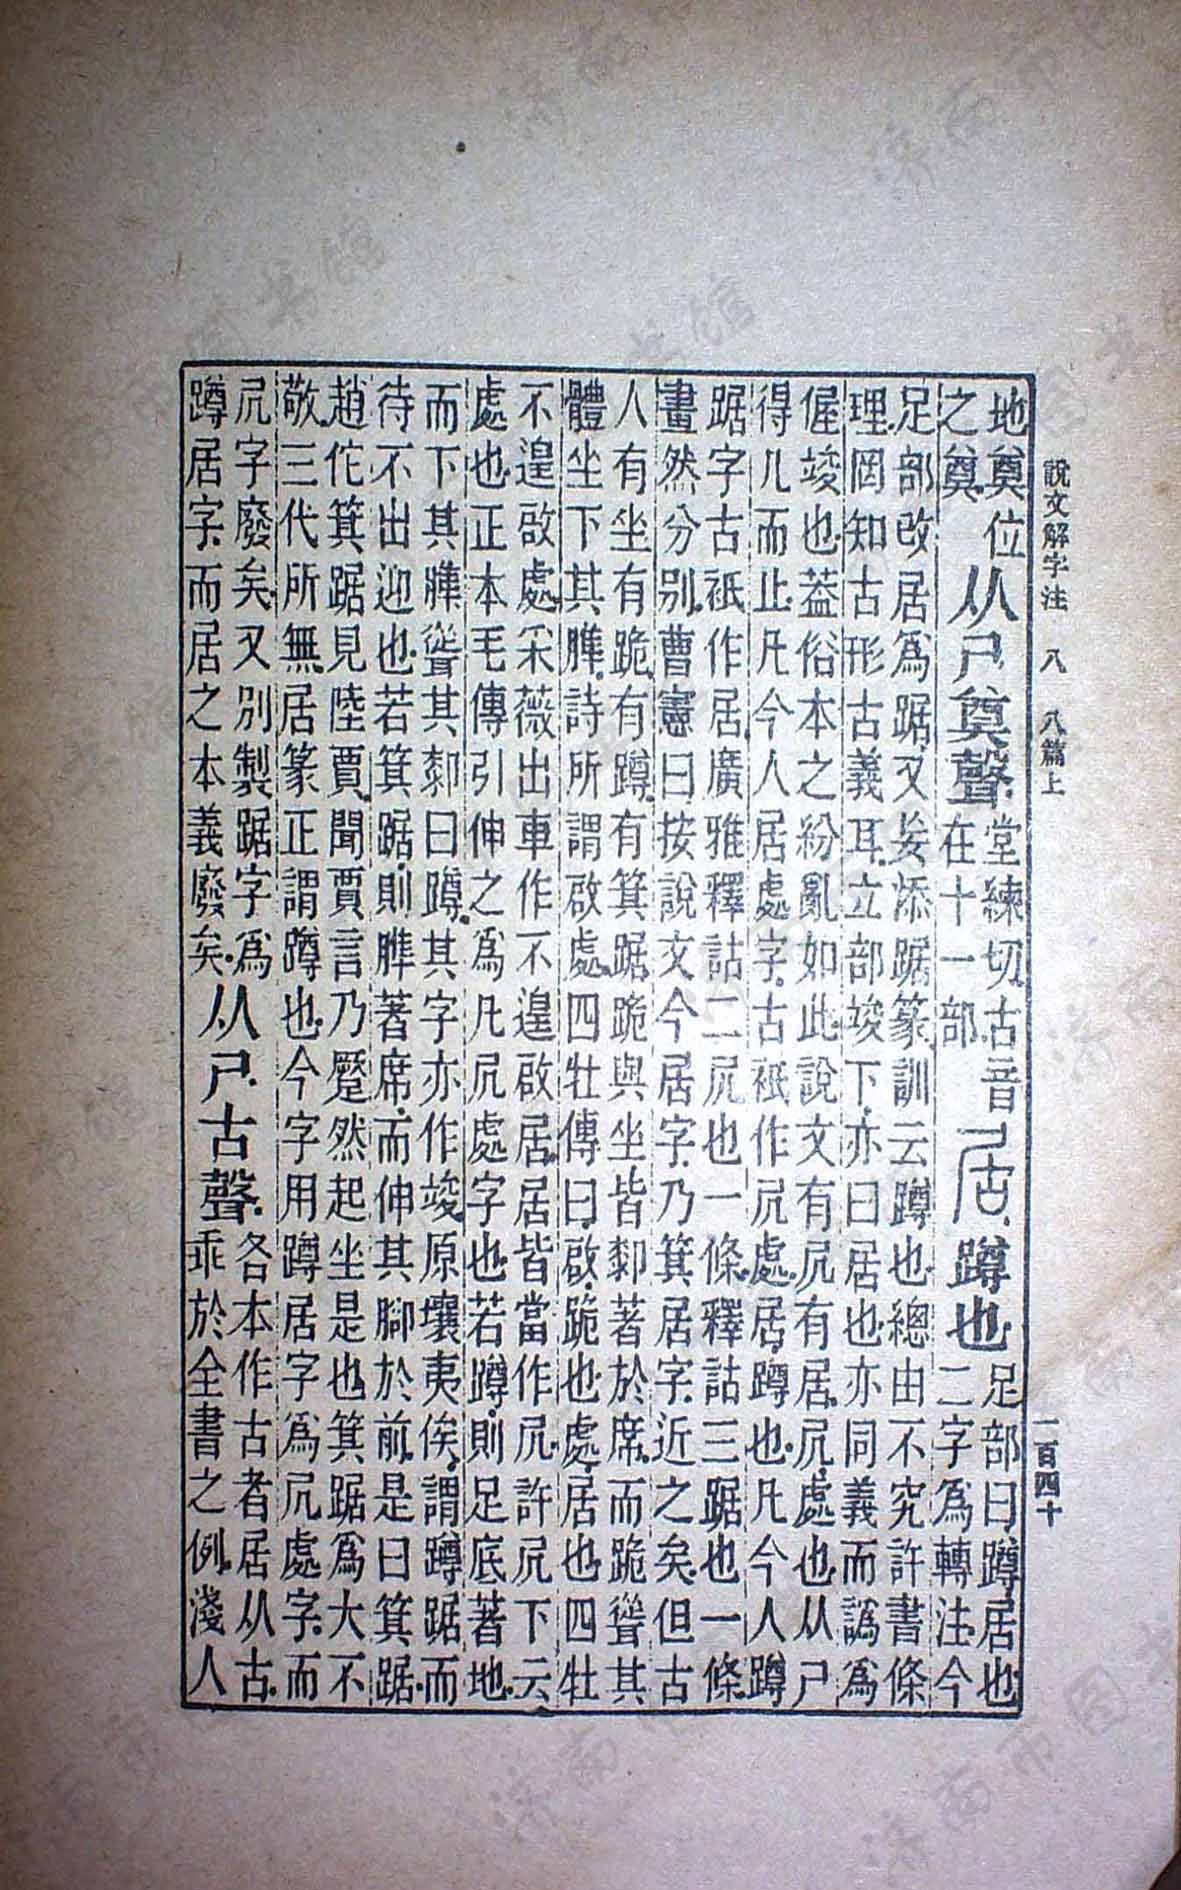 說文解字注 八 八篇上 一百四十
地奠位
之奠
从尸奠聲
堂練切古音
在十一部
居蹲也
足部曰蹲居也
二字爲轉注今
足部改居爲踞又妄添踞篆訓云蹲也總由不究許書條
理罔知古形古義耳立部竣下亦曰居也亦同義而譌爲
偓竣也葢俗本之紛亂如此說文有凥有居凥處也从尸
得几而止凡今人居處字古衹作凥處居蹲也凡今人蹲
踞字古衹作居廣雅釋詁二凥也一條釋詁三踞也一條
畫然分別曹憲曰按說文今居字乃箕居字近之矣但古
人有坐有跪有蹲有箕踞跪與坐皆厀著於席而跪聳其
體坐下其脽詩所謂啟處四牡傳曰啟跪也處居也四牡
不遑啟處采薇出車作不遑啟居居皆當作凥許凥下云
處也正本毛傳引伸之爲凡凥處字也若蹲則足底著地
而下其脽聳其厀曰蹲其字亦作竣原壤夷俟謂蹲踞而
待不出迎也若箕踞則脽著席而伸其腳於前是曰箕踞
趙佗箕踞見陸賈聞賈言乃蹷然起坐是也箕踞爲大不
敬三代所無居篆正謂蹲也今字用蹲居字爲凥處字而
凥字廢矣又別製踞字爲
蹲居字而居之本義廢矣
从尸古聲
各本作古者居从古
乖於全書之例淺人
济南市图书馆